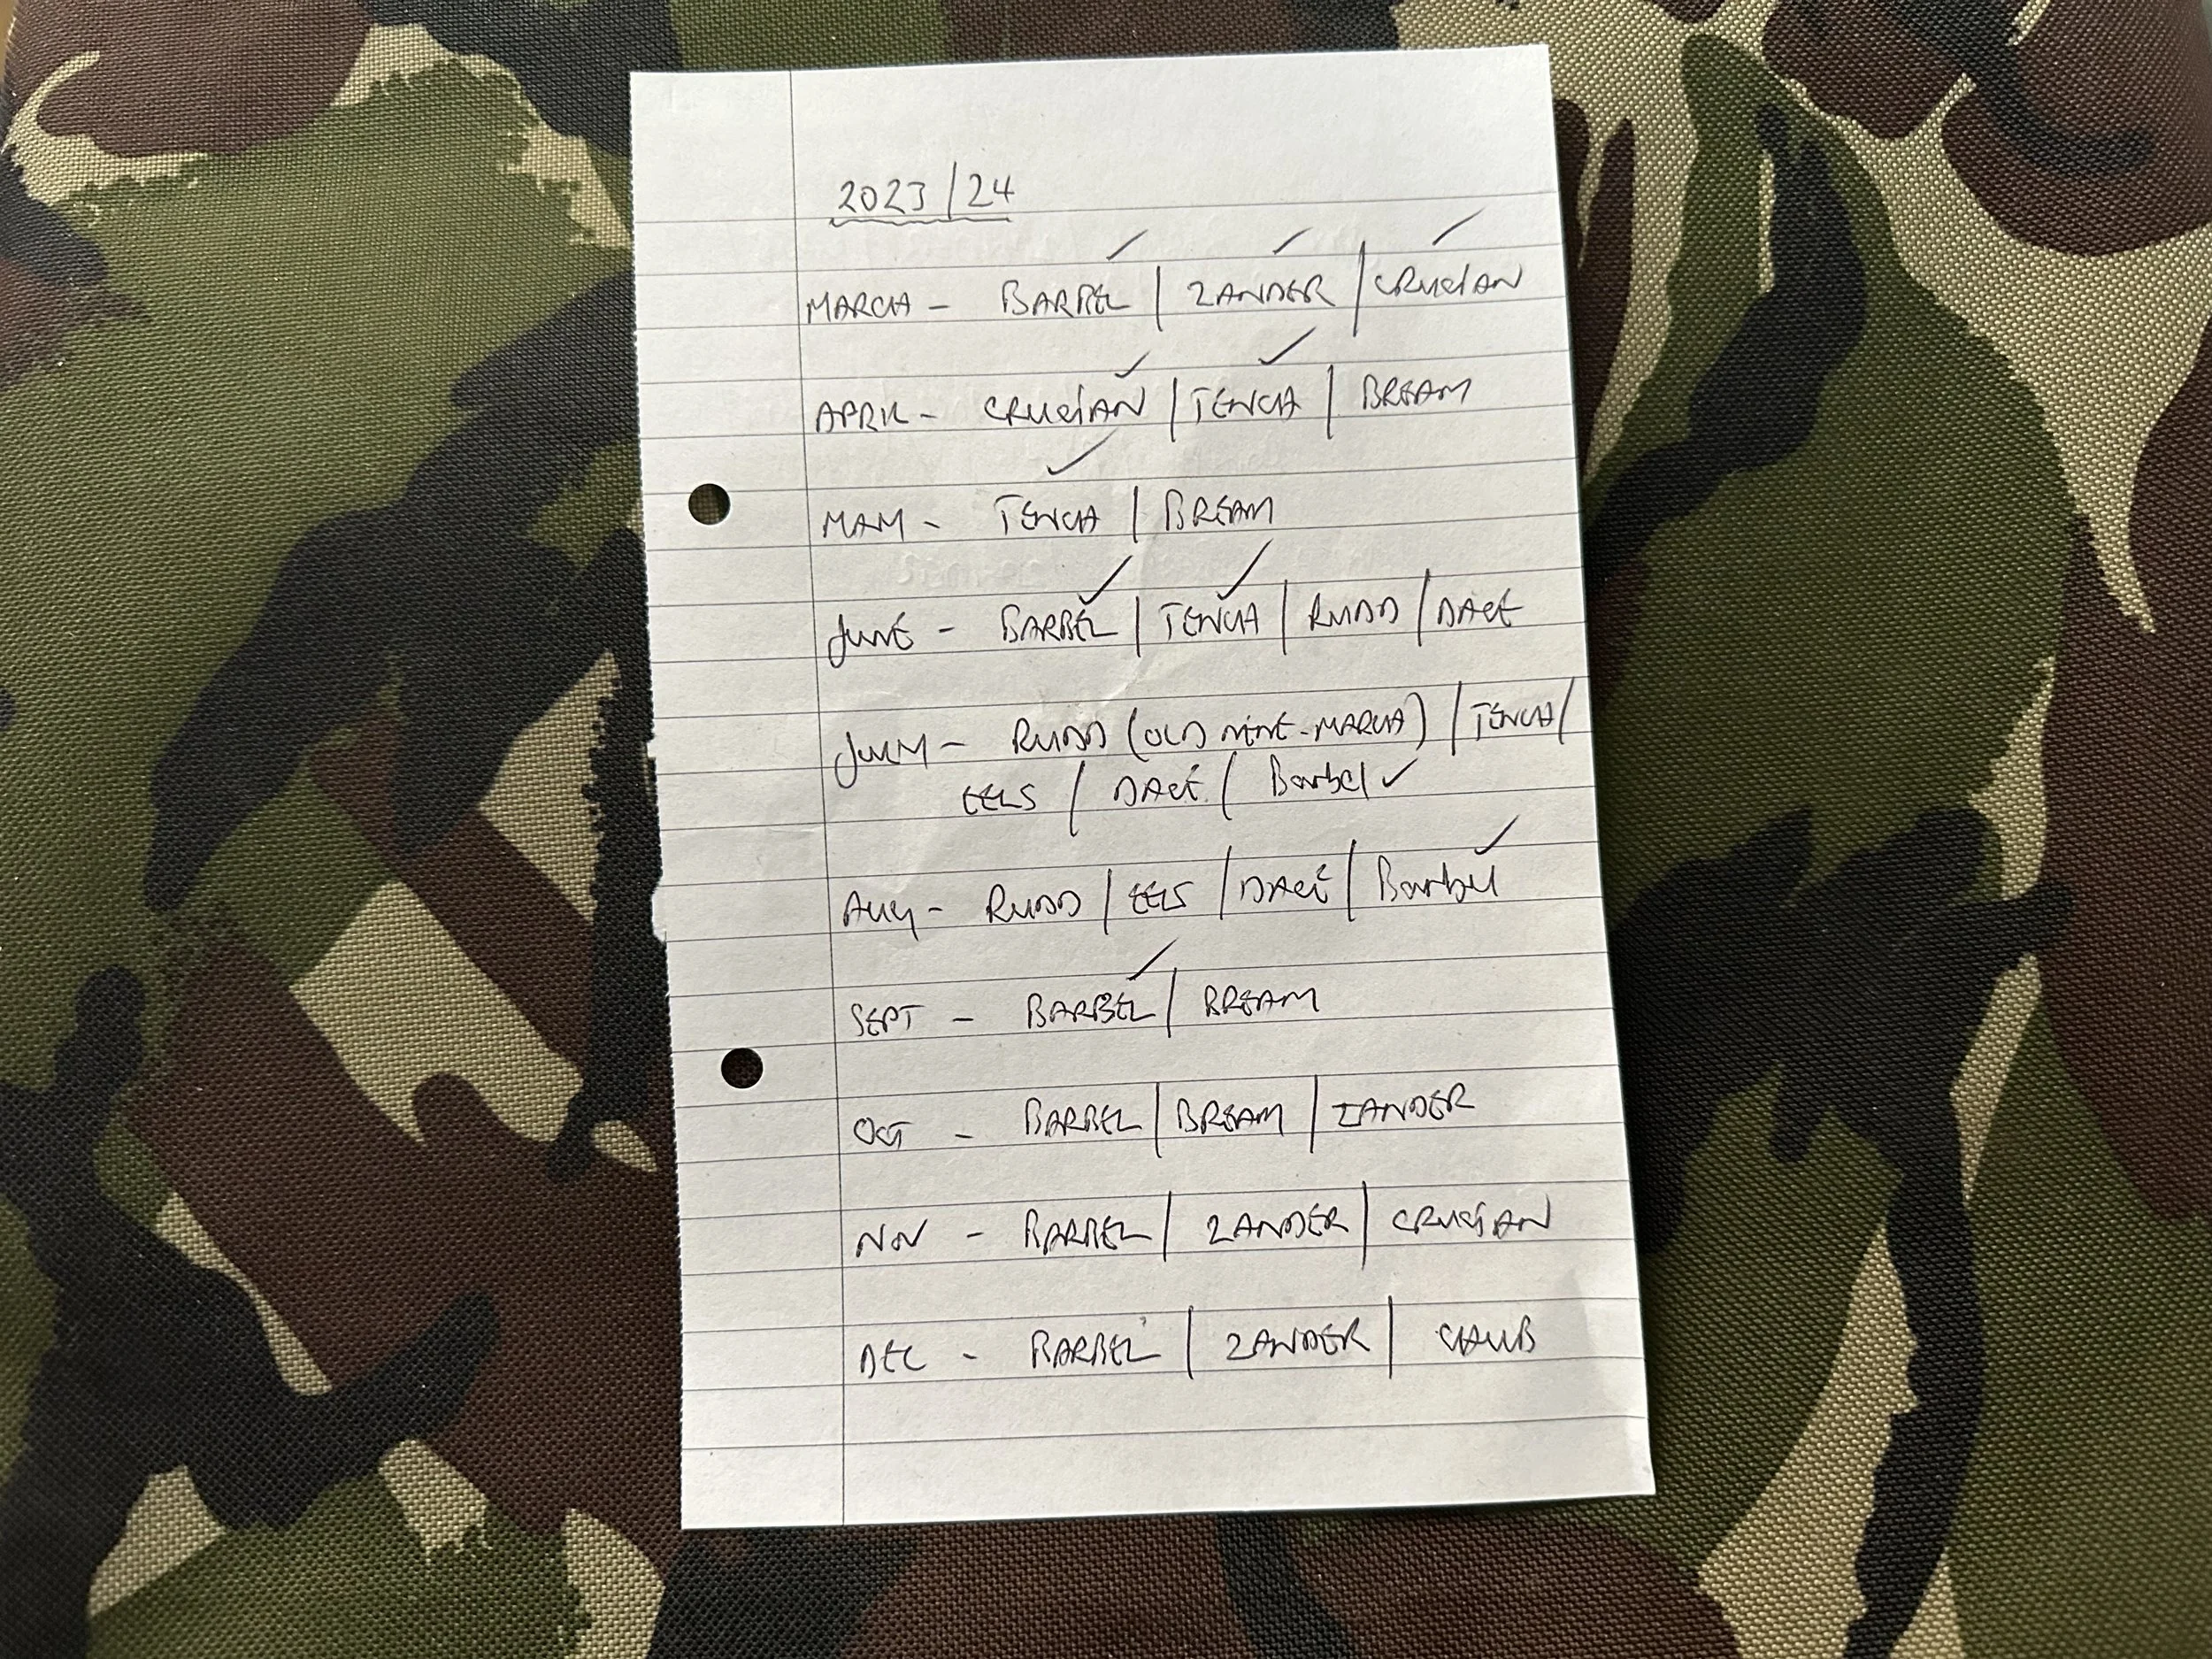 2023/24
MARCH - BARBEL | ZANDER | CRUCIAN
APRIL - CRUCIAN | TENCH | BREAM
MAY - TENCH | BREAM
JUNE - BARBEL | TENCH | RUDD | DACE
JULY - RUDD (OLD NENE - MARCH) | TENCH |
EELS | DACE | Barbel ✓
AUG - RUDD | EELS | DACE | Barbel
SEPT - BARBEL | BREAM
OCT - BARBEL | BREAM | ZANDER
NOV - BARBEL | ZANDER | CRUCIAN
DEC - BARBEL | ZANDER | CHUB